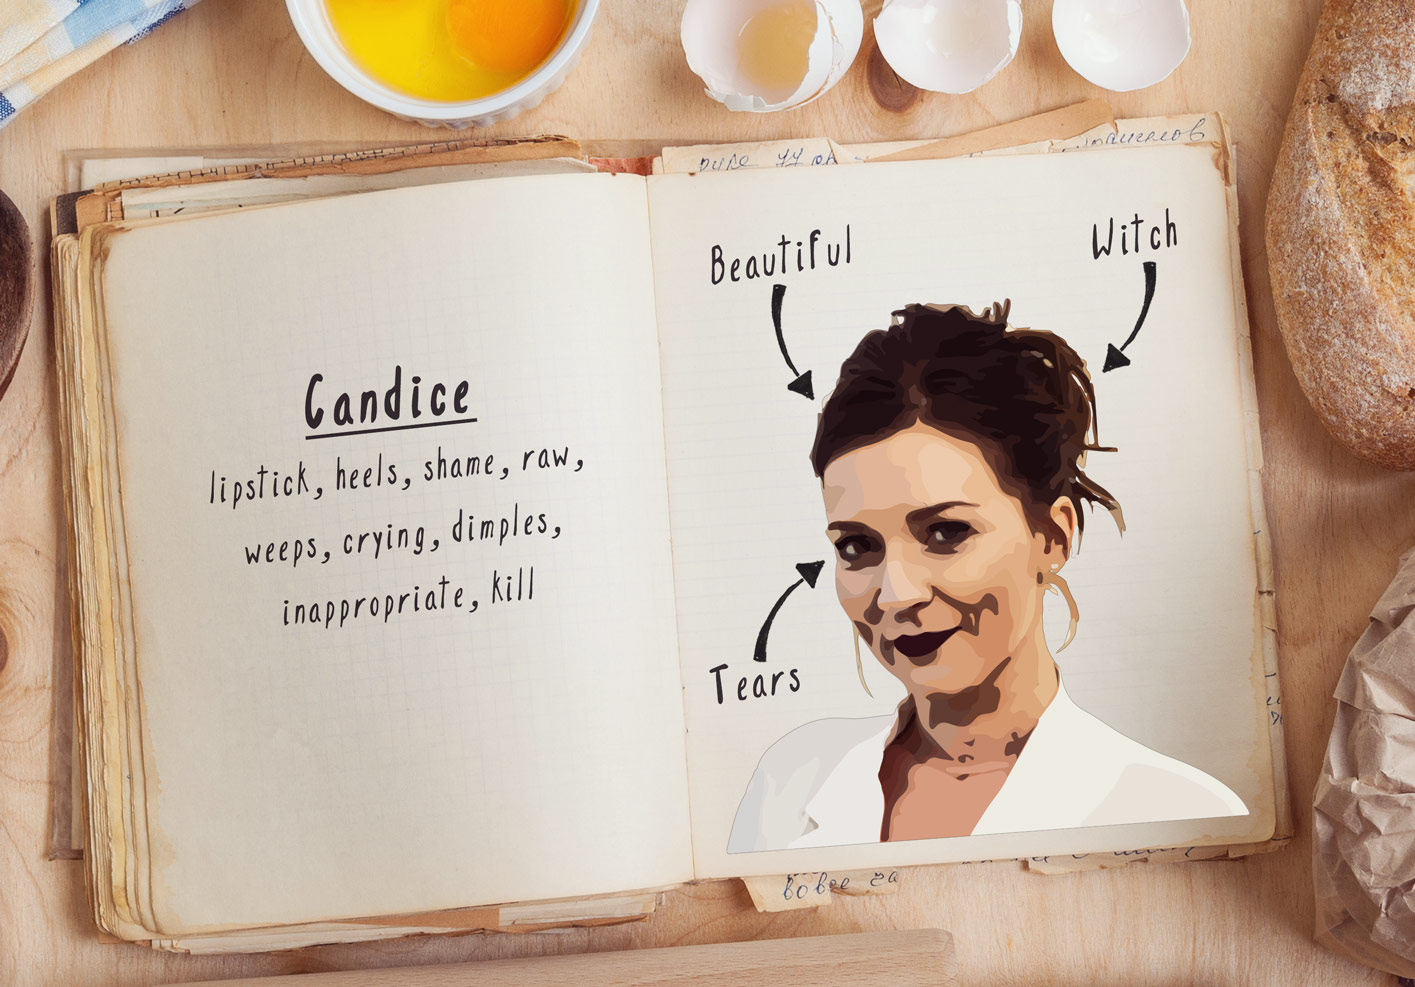 Candice
lipstick, heels, shame, raw,
weeps, crying, dimples,
inappropriate, kill
Beautiful
Witch
Tears
вовсе за